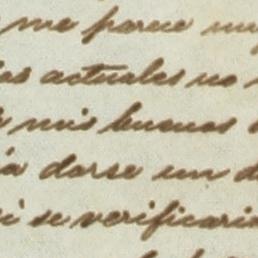 me parece muy
las actuales no
mis buenos
darse un d
si se verificaria